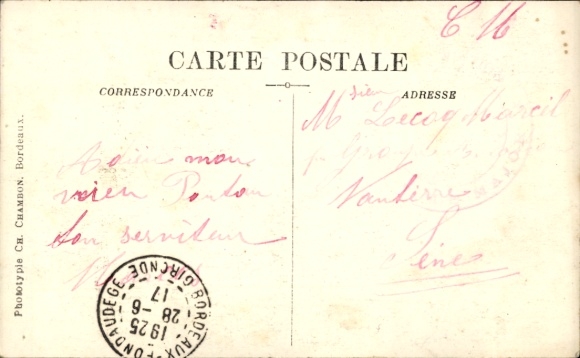 C M
CARTE POSTALE
CORRESPONDANCE
ADRESSE
Adieu mon
vieu Ponton
ton serviteur
M Lecoq Marcel
Nanterre
Seine
Phototypie CH. CHAMBON, Bordeaux.
BORDEAUX-FONDAUDEGE GIRONDE
17
28-6
1925